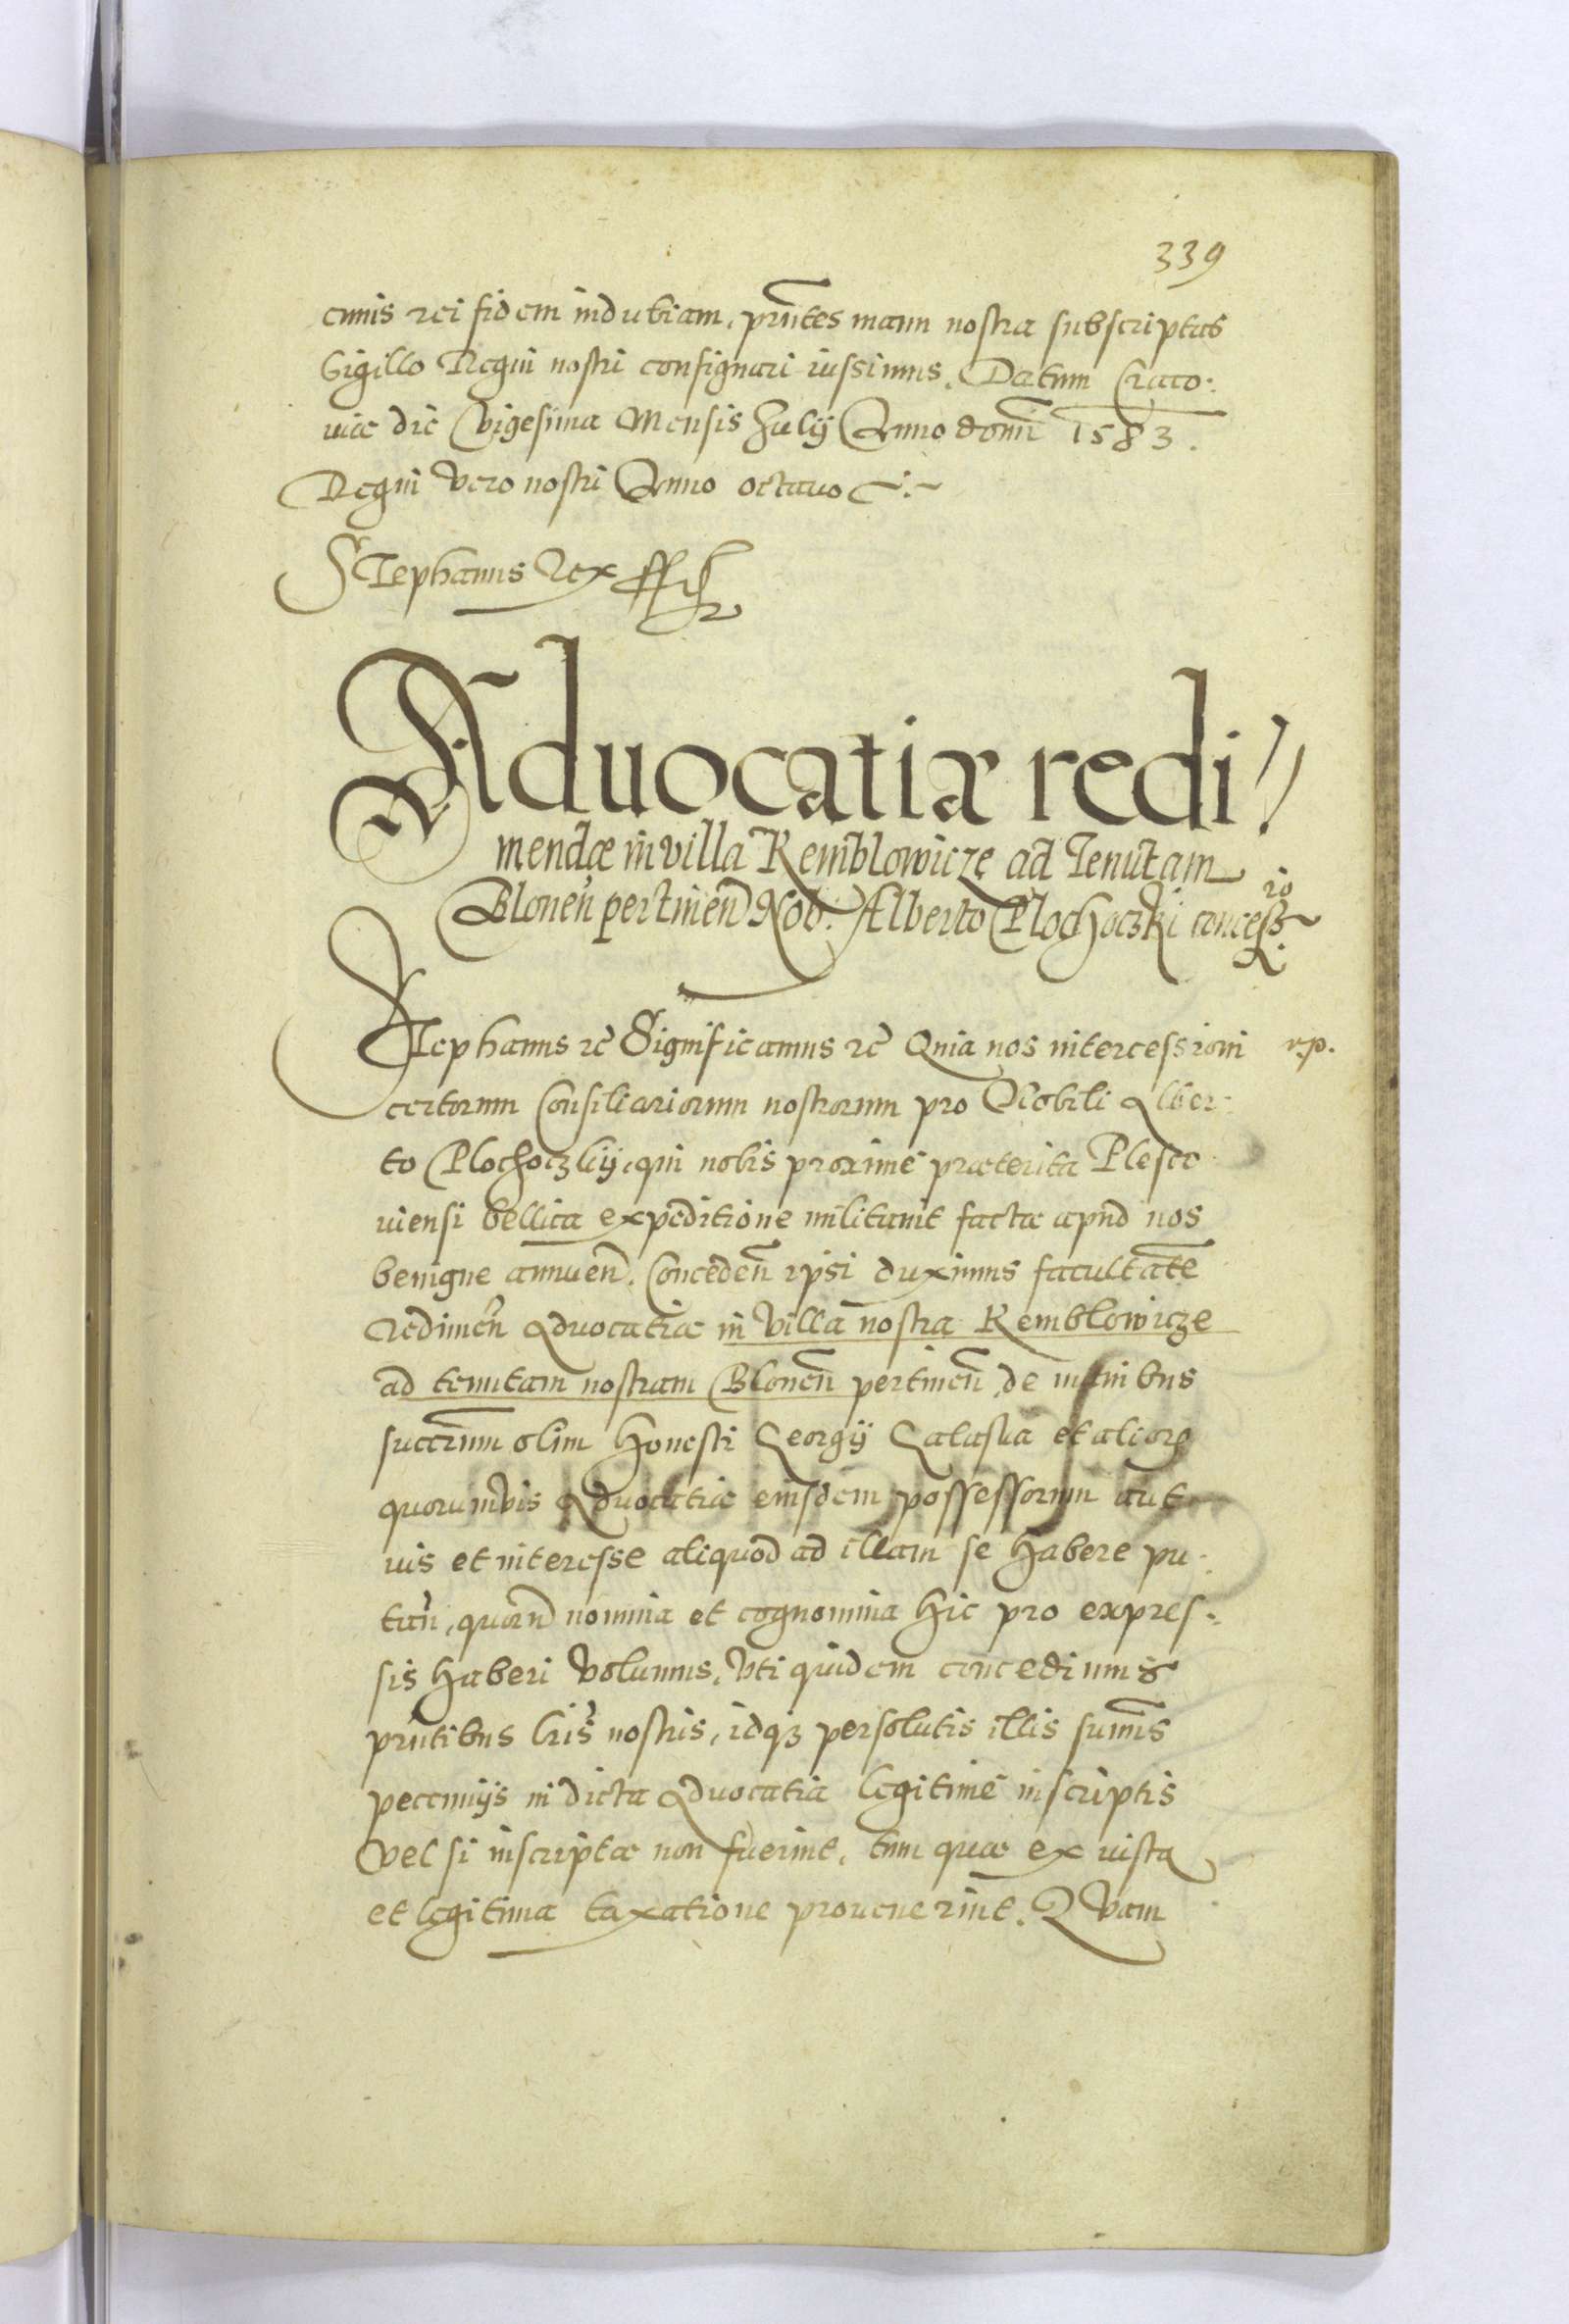 339
cuius rei fidem indubiam, prñtes manu nostra subscriptas
Sigillo Regni nostri consignari iussimus. Datum Craco:
uiæ die Vigesima Mensis Julÿ Anno domĩ 1583.
Regni vero nostri Anno octauo
Stephanus Rex
Aduocatiæ redi
mendæ in villa Remblowicze ad Tenutam
Bloneñ pertineñ Nob: Alberto Plochoczki concess:
io
Stephanus rc̃ Significamus rc̃ Quia nos intercessioni
rp.
certorum Consiliariorum nostrorum pro Nobili Alber:
to Plochoczkÿ, qui nobis proxime præterita Plesco
uiensi bellica expeditione militauit factæ apud nos
benigne annueñ. Concedeñ ipsi duximus facultatẽ
Redimeñ Aduocatiæ in Villa nostra Remblowicze
ad tenutam nostram Bloneñ pertineñ, de manibus
succrum olim Honesti Georgÿ et alior
quorumvis Aduocatiæ eiusdem possessorum aut
uis et interesse aliquod ad illam se habere pu:
tañ, quorũ nomina et cognomina hic pro expres:
sis haberi volumus. Vti quidem concedimus
prñtibus lr̃is nostris, idqz persolutis illis sum̃is
pecuniÿs in dicta Aduocatia legitimè inscriptis
Vel si inscriptæ non fuerint, tum quæ ex iusta
et legitima taxatione prouenerint. Quam